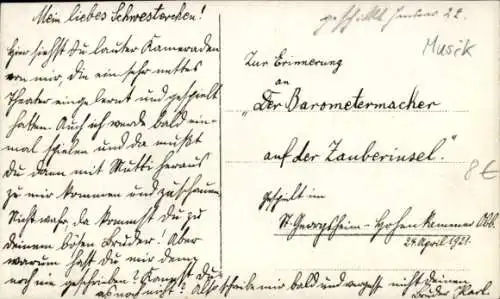 Mein liebes Schwesterchen!
Hier siehst Du lauter Kameraden
von mir, die ein sehr nettes
Theater eingelernt und gespielt
hatten. Auch ich werde bald ein-
mal spielen und da mußt
Du dann mit Mutti heraus
zu mir kommen und zuschauen.
Nicht wahr, da kommst Du zu
deinem bösen Bruder! Aber
warum hast Du mir denn
noch nie geschrieben? Kannst Du
es noch nicht? Also schreibe mir bald und vergeß nicht Deinen
Bruder Karl.
22.
Musik
Zur Erinnerung
an
"Der Barometermacher
auf der Zauberinsel."
8€
Gespielt im
St. Georgsheim - Hohenkammer Obb.
24. April 1921.